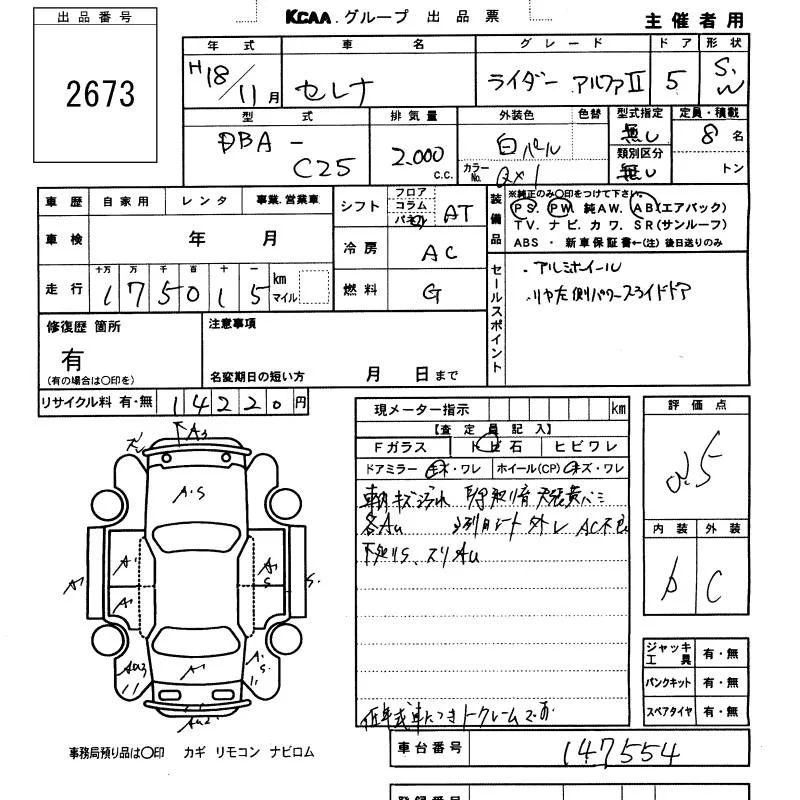 出品番号
2673
KCAA.グループ 出品票
主催者用
年式 車名 グレード ドア 形状
H18/11月 セレナ ライダー アルファII 5 S.W
型式 排気量 外装色 色替 型式指定 定員・積載
DBA-C25 2.000 C.C. 白パール 無し 8名
カラーNo. QX1 類別区分 無し トン
車歴 自家用 レンタ 事業.営業車
シフト フロア コラム パネル AT
装備品 ※純正のみ〇印をつけて下さい。
PS. PW. 純AW. AB(エアバック)
TV. ナビ. カワ. SR(サンルーフ)
ABS ・ 新車保証書←(注) 後日送りのみ
車検 年 月
冷房 AC
走行 十万 万 千 百 十 一 km マイル
175015
燃料 G
セールスポイント
・アルミホイール
・リヤ左側パワースライドドア
修復歴 箇所
有
(有の場合は〇印を)
注意事項
名変期日の短い方 月 日まで
リサイクル料 有・無 14220円
現メーター指示 km
【査定員記入】
Fガラス トビ石 ヒビワレ
ドアミラー キズ・ワレ ホイール(CP) キズ・ワレ
各AU 3列目シート外し AC不良
下廻りS、スリAU
低年式車につきノークレームで
評価点
内装 外装
b C
A3
A.S
A1
A1
A1
A S
A1
S.
AU3
A1
A.S
AU2
ジャッキ工具 有・無
パンクキット 有・無
スペアタイヤ 有・無
車台番号 147554
事務局預り品は〇印 カギ リモコン ナビロム
登録番号